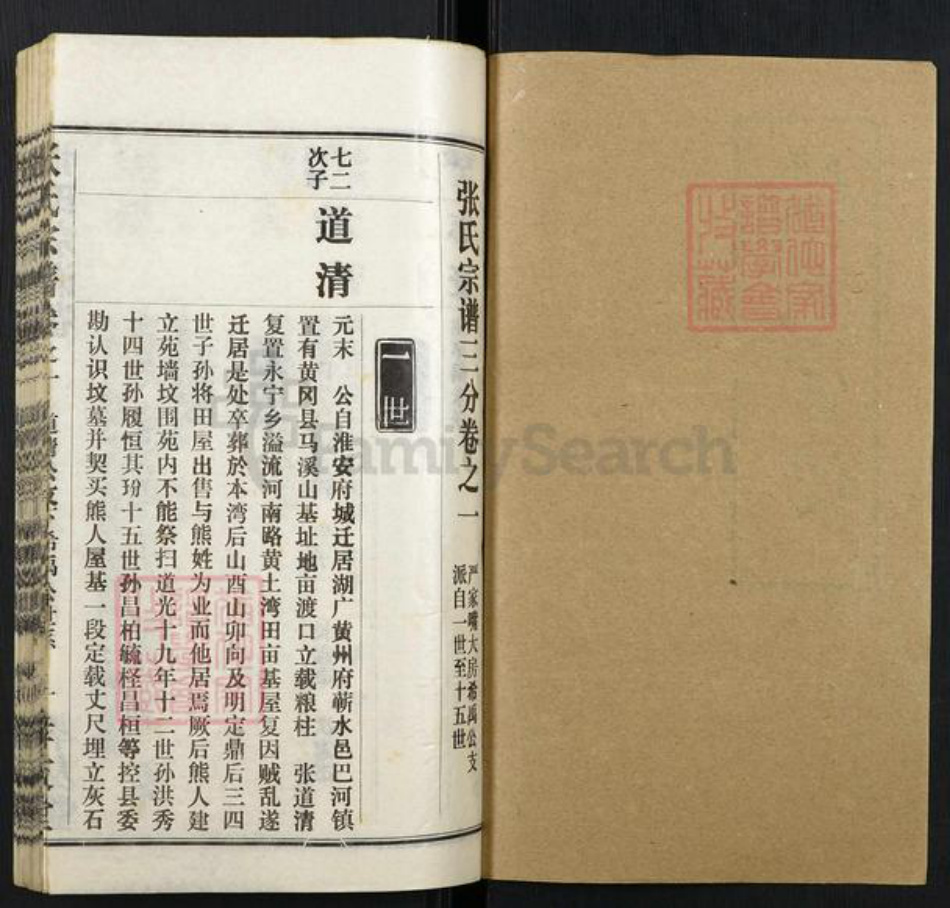 张氏宗谱三分卷之一
严家嘴大房希禹公支
派自一世至十五世
一世
七二
次子
道清
元末　公自淮安府城迁居湖广黄州府蕲水邑巴河镇
置有黄冈县马溪山基址地亩渡口立载粮柱　张道清
复置永宁乡溢流河南路黄土湾田亩基屋复因贼乱遂
迁居是处卒葬於本湾后山酉山卯向及明定鼎后三四
世子孙将田屋出售与熊姓为业而他居焉厥后熊人建
立苑墙坟围苑内不能祭扫道光十九年十二世孙洪秀
十四世孙履恒其玢十五世孙昌柏毓柽昌桓等控县委
勘认识坟墓并契买熊人屋基一段定载丈尺埋立灰石
FamilySearch